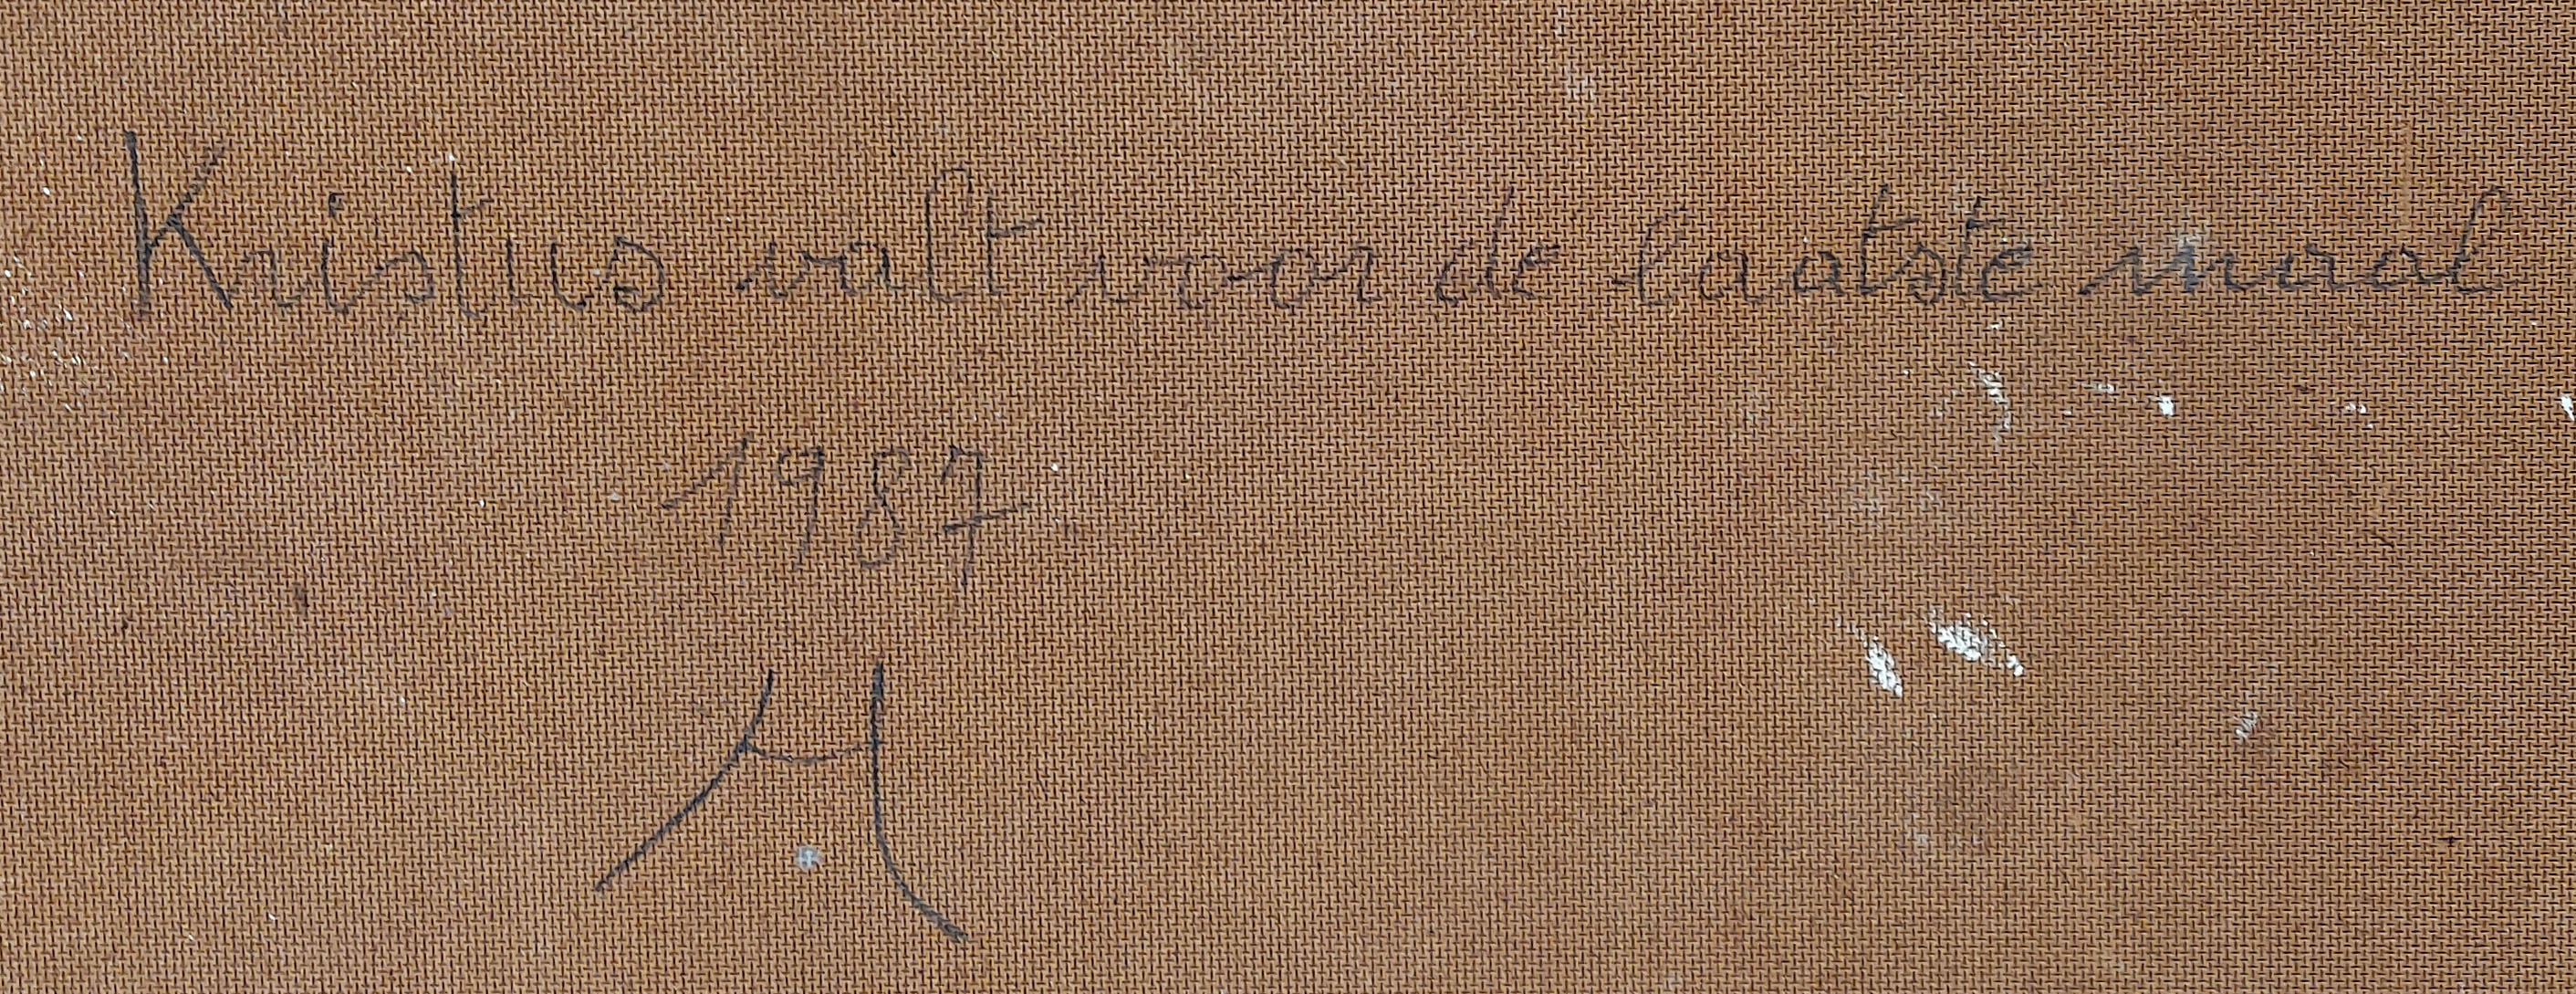 Kristus valt voor de laatste maal
1987